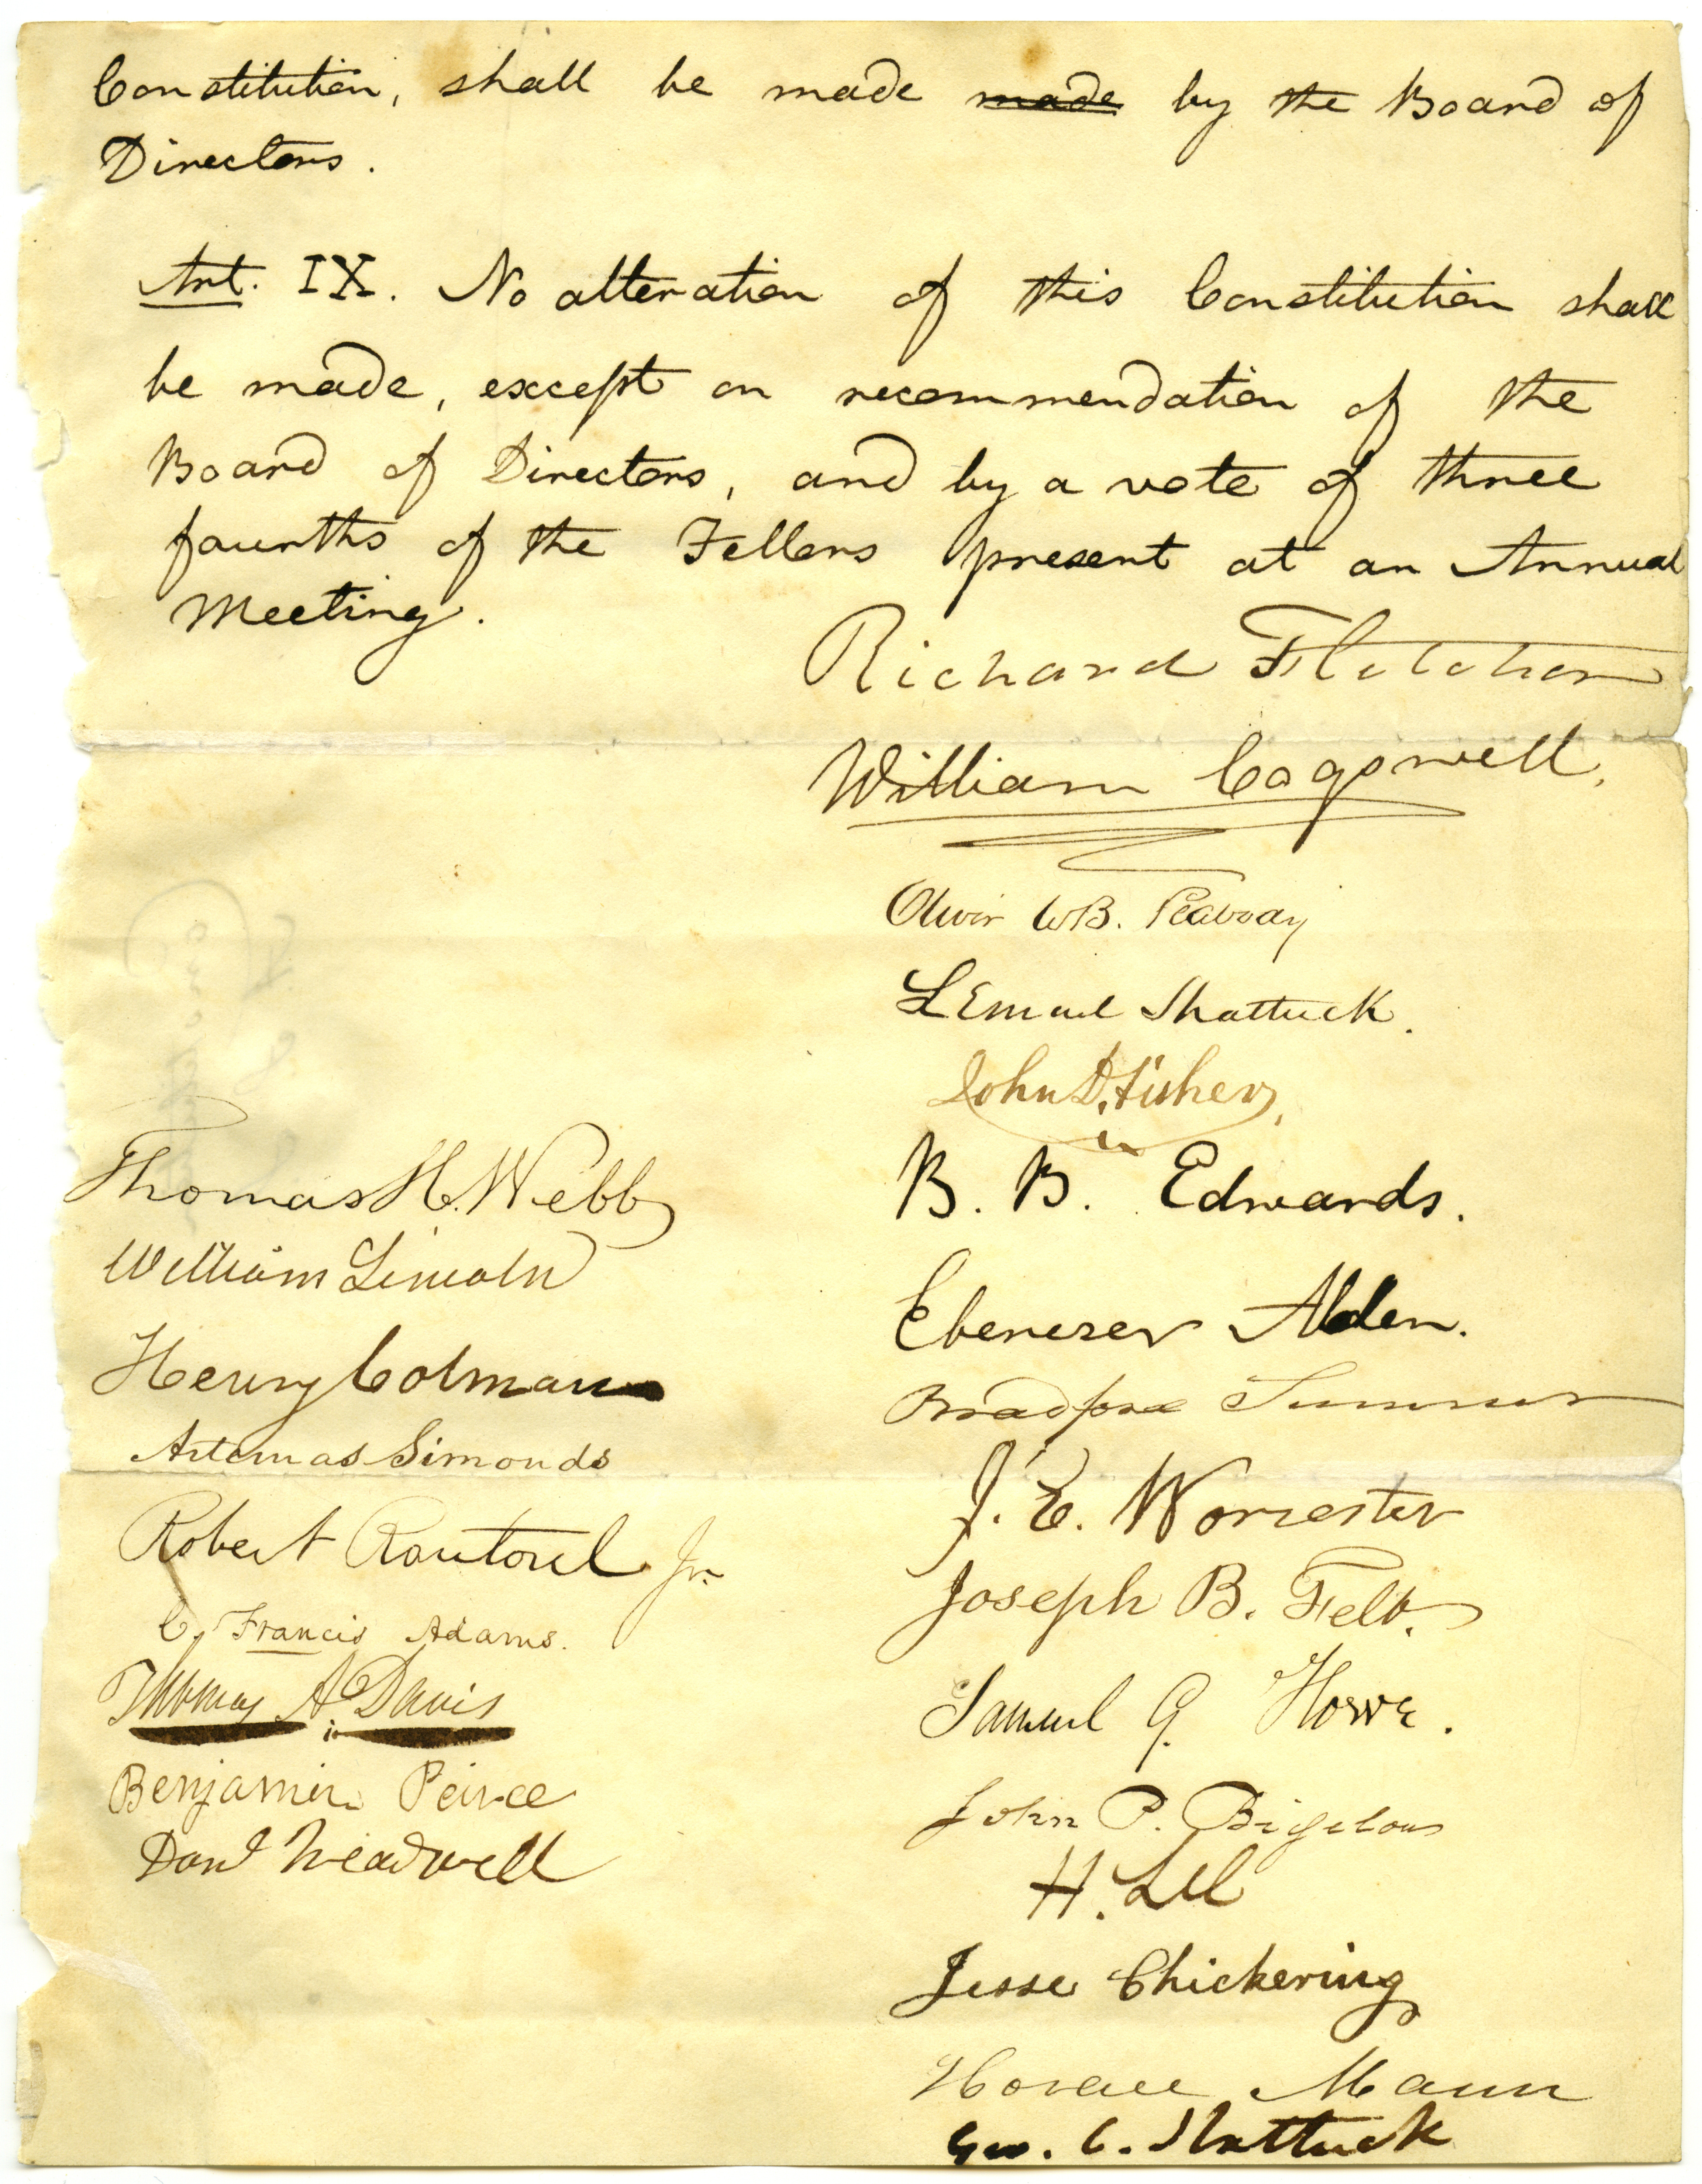 Constitution, shall be made made by the Board of
Directors.
Art. IX. No alteration of this Constitution shall
be made, except on recommendation of the
Board of Directors, and by a vote of three
fourths of the Fellows present at an Annual
Meeting.
Richard Fletcher
William Cogswell.
Oliver W B. Peabody
Lemuel Shattuck.
John D. Fisher,
B. B. Edwards.
Ebenezer Alden.
Bradford Sumner
J. E. Worcester
Joseph B. Felt.
Samuel G. Howe.
John P. Bigelow
H. Lee
Jesse Chickering
Horace Mann
Geo. C. Shattuck
Thomas H. Webb
William Lincoln
Henry Colman
Artemas Simonds
Robert Rantoul Jr.
C. Francis Adams.
Thomas A. Davis
Benjamin Peirce
Danl Treadwell